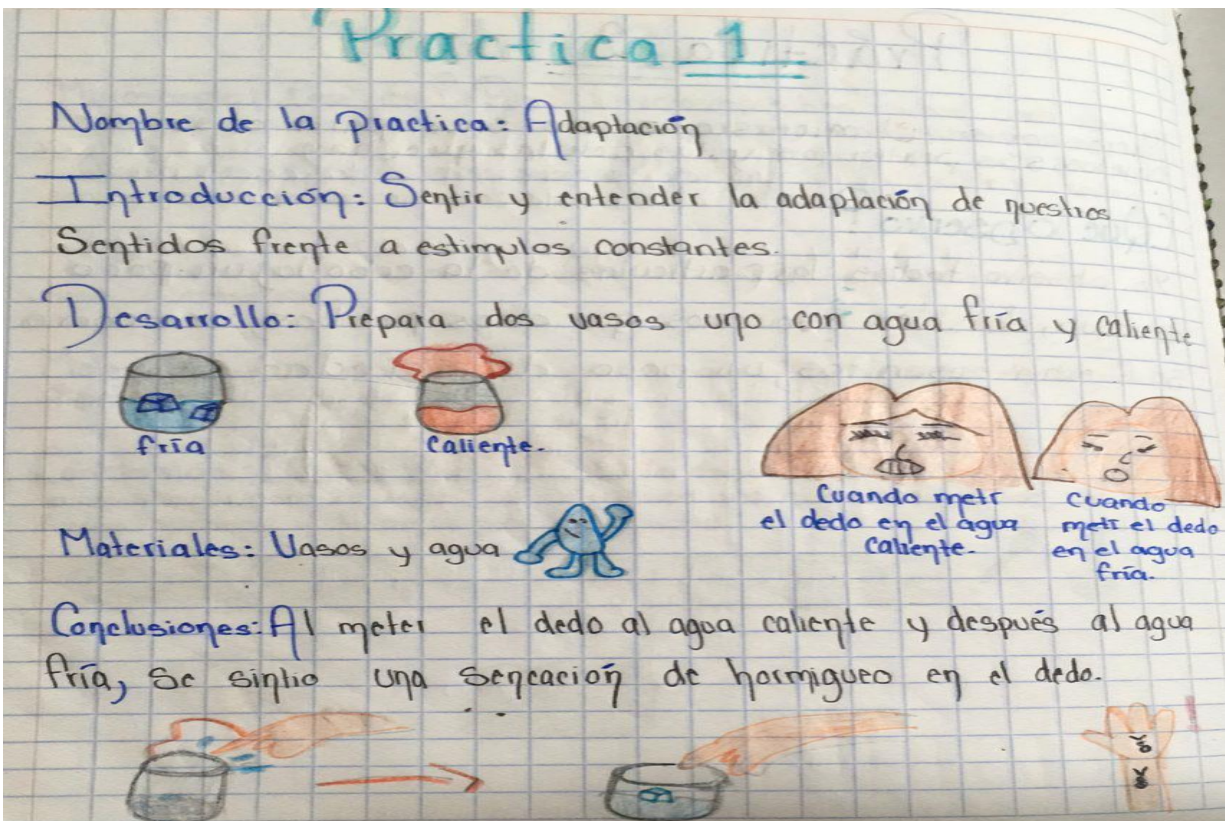 Practica 1
Nombre de la practica: Adaptación
Introducción: Sentir y entender la adaptación de nuestros
Sentidos frente a estimulos constantes.
Desarrollo: Prepara dos vasos uno con agua fría y caliente
fría
caliente.
Cuando metí
el dedo en el agua
caliente.
cuando
metí el dedo
en el agua
fría.
Materiales: Vasos y agua
Conclusiones: Al meter el dedo al agua caliente y después al agua
fría, Se sintio una sencación de hormigueo en el dedo.